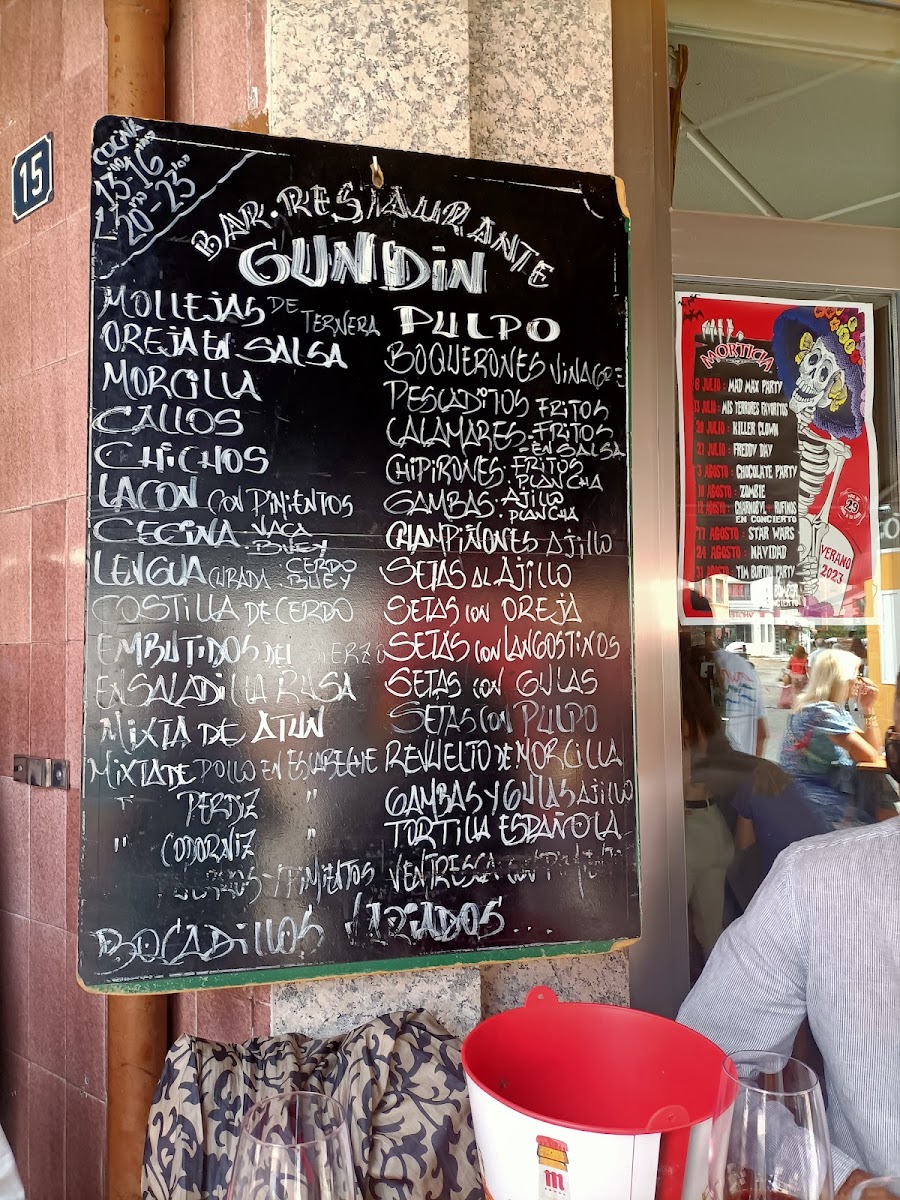 15
COCINA
13-16
20-23
BAR-RESTAURANTE
GUNDIN
MOLLEJAS DE TERNERA
OREJA EN SALSA
MORCILLA
CALLOS
CHICHOS
LACON CON PIMIENTOS
CECINA . VACA
. BUEY
LENGUA CURADA . CERDO
BUEY
COSTILLA DE CERDO
EMBUTIDOS DEL BIERZO
ENSALADILLA RUSA
MIXTA DE ATUN
MIXTA DE POLLO EN ESCABECHE
" PERDIZ "
" CODORNIZ "
PIMIENTOS
PULPO
BOQUERONES VINAGRE
PESCADITOS FRITOS
CALAMARES . FRITOS
- EN SALSA
CHIPIRONES . FRITOS
PLANCHA
GAMBAS . AJILLO
. PLANCHA
CHAMPIÑONES AJILLO
SETAS AL AJILLO
SETAS CON OREJA
SETAS CON LANGOSTINOS
SETAS CON GULAS
SETAS CON PULPO
REVUELTO DE MORCILLA
GAMBAS Y GULAS AJILLO
TORTILLA ESPAÑOLA
VENTRESCA CON PIMIENTO
BOCADILLOS VARIADOS...
MORTICIA
6 JULIO : MAD MAX PARTY
13 JULIO : MIS TERRORES FAVORITOS
20 JULIO : KILLER CLOWN
27 JULIO : FREDDY DAY
3 AGOSTO : CHOCOLATE PARTY
10 AGOSTO : ZOMBIE
12 AGOSTO : CHARNOBYL - RUFINOS
EN CONCIERTO
17 AGOSTO : STAR WARS
24 AGOSTO : NAVIDAD
31 AGOSTO : TIM BURTON PARTY
VERANO
2023
23
m